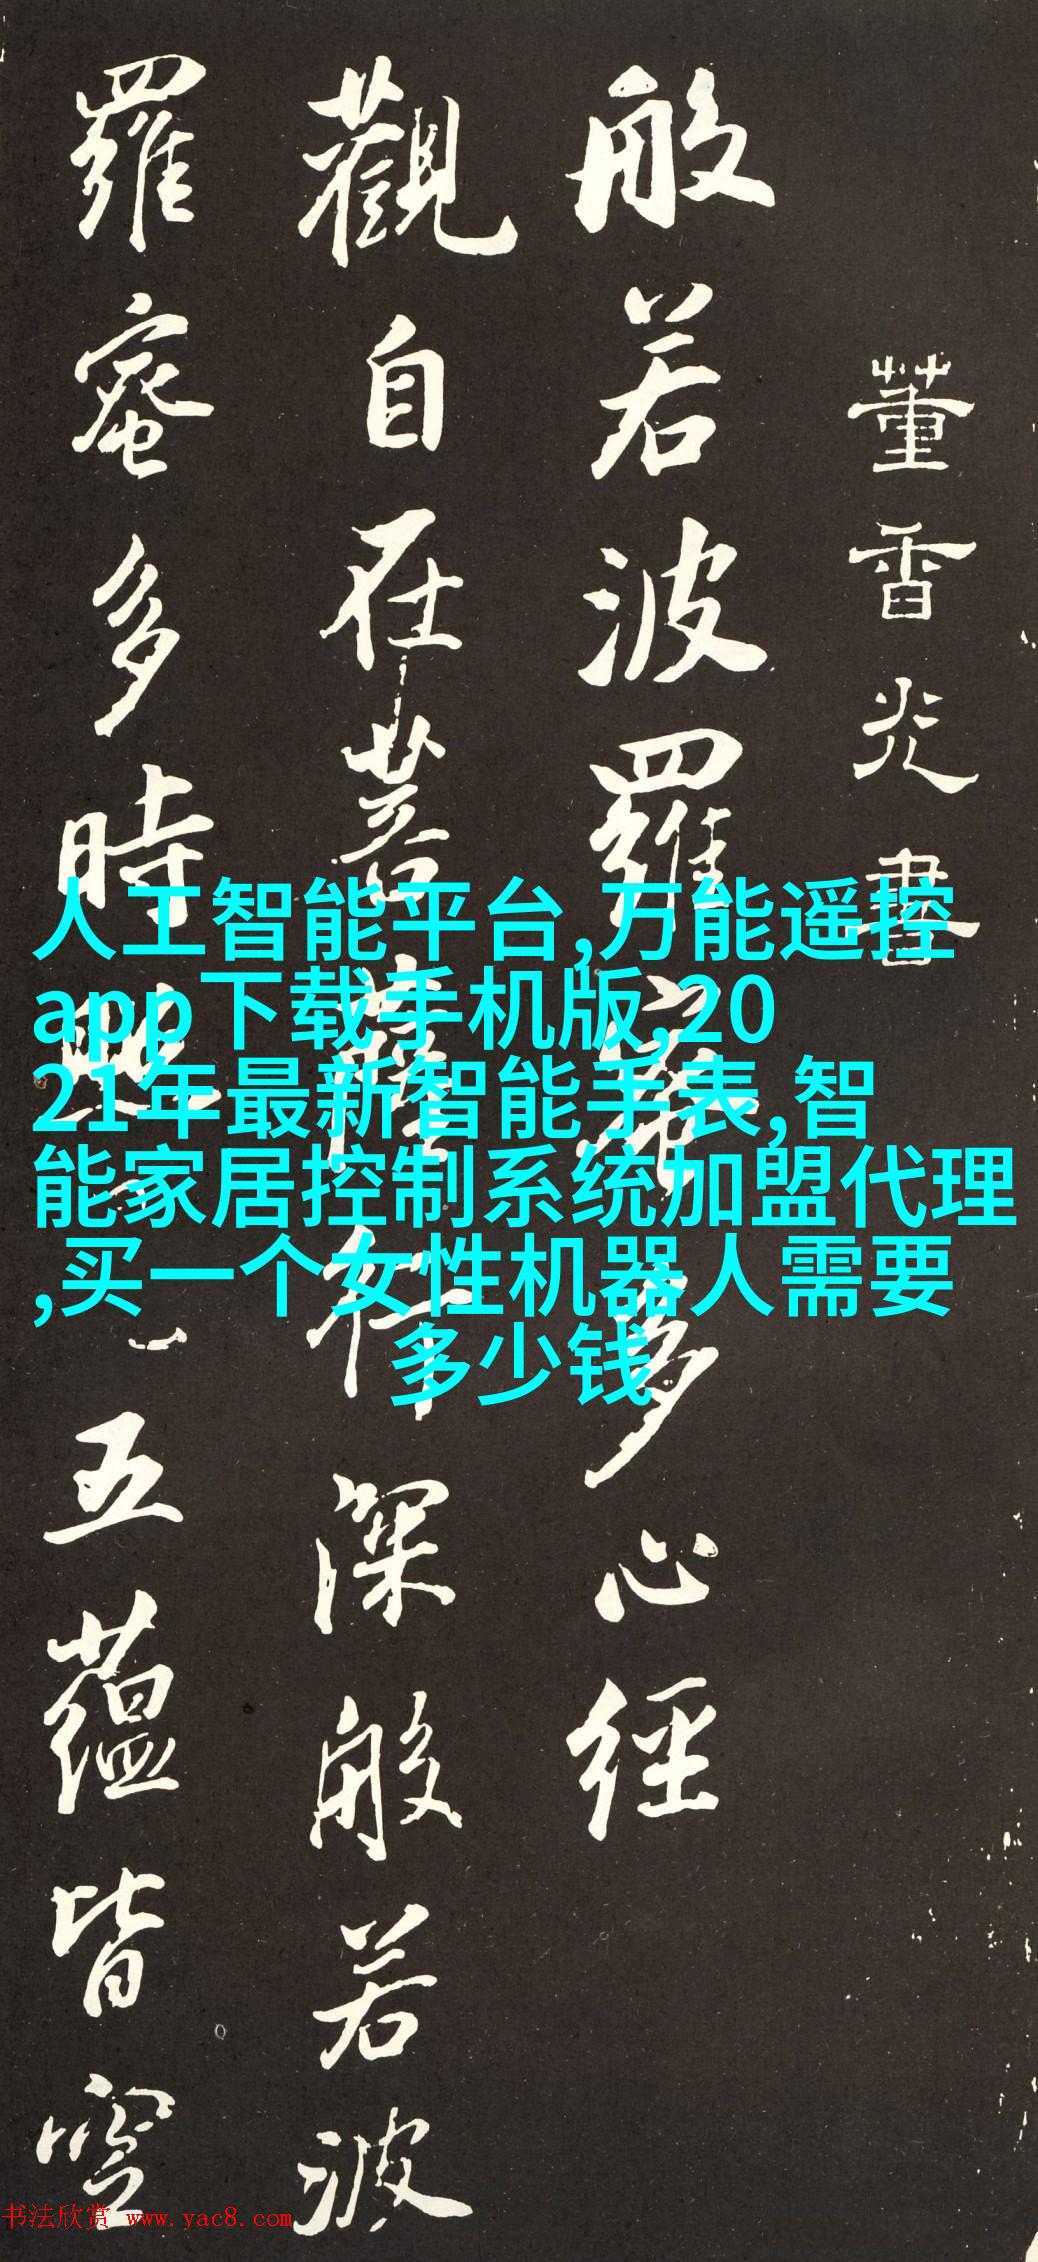 董香光書
般若波羅蜜多心經
觀自在菩薩行深般若波
羅蜜多時照見五蘊皆空
人工智能平台,万能遥控
app下载手机版,20
21年最新智能手表,智
能家居控制系统加盟代理
,买一个女性机器人需要
多少钱
书法欣赏 www.yac8.com